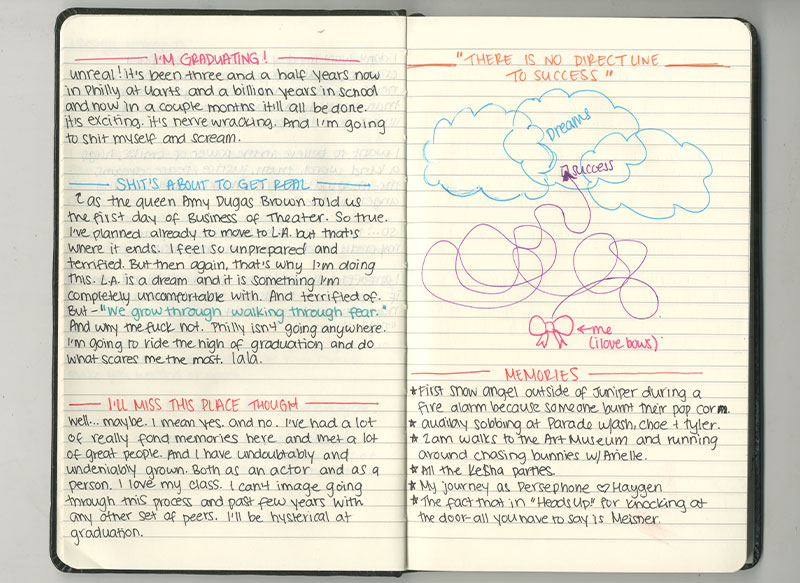 I'M GRADUATING!
unreal! it's been three and a half years now
in Philly at Uarts and a billion years in school
and now in a couple months it'll all be done.
it's exciting. it's nerve wracking. And I'm going
to shit myself and scream.
SHIT'S ABOUT TO GET REAL
as the queen Amy Dugas Brown told us
the first day of Business of Theater. So true.
I've planned already to move to L.A. but that's
where it ends. I feel so unprepared and
terrified. But then again, that's why I'm doing
this. L.A. is a dream and it is something I'm
completely uncomfortable with. And terrified of.
But - "We grow through walking through fear."
And why the fuck not. Philly isn't going anywhere.
I'm going to ride the high of graduation and do
what scares me the most. lala.
I'LL MISS THIS PLACE THOUGH
Well... maybe. I mean yes. and no. I've had a lot
of really fond memories here and met a lot
of great people. And I have undoubtably and
undeniably grown. Both as an actor and as a
person. I love my class. I can't image going
through this process and past few years with
any other set of peers. I'll be hysterical at
graduation.
"THERE IS NO DIRECT LINE
TO SUCCESS"
Dreams
success
me
(i love bows)
MEMORIES
★ First snow angel outside of Juniper during a
fire alarm because someone burnt their pop corn.
★ audibly sobbing at Parade w/ash, choe + tyler.
★ 2am walks to the Art Museum and running
around chasing bunnies w/ Arielle.
★ All the Ke$ha parties.
★ My journey as Persephone ♡ Haygen
★ The fact that in "Heads Up" for knocking at
the door-all you have to say is Meisner.